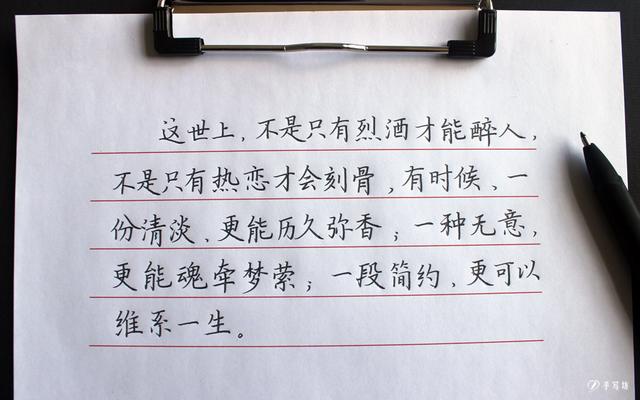 这世上，不是只有烈酒才能醉人，
不是只有热恋才会刻骨，有时候、一
份清淡、更能历久弥香；一种无意，
更能魂牵梦萦；一段简约、更可以
维系一生。
手写坊